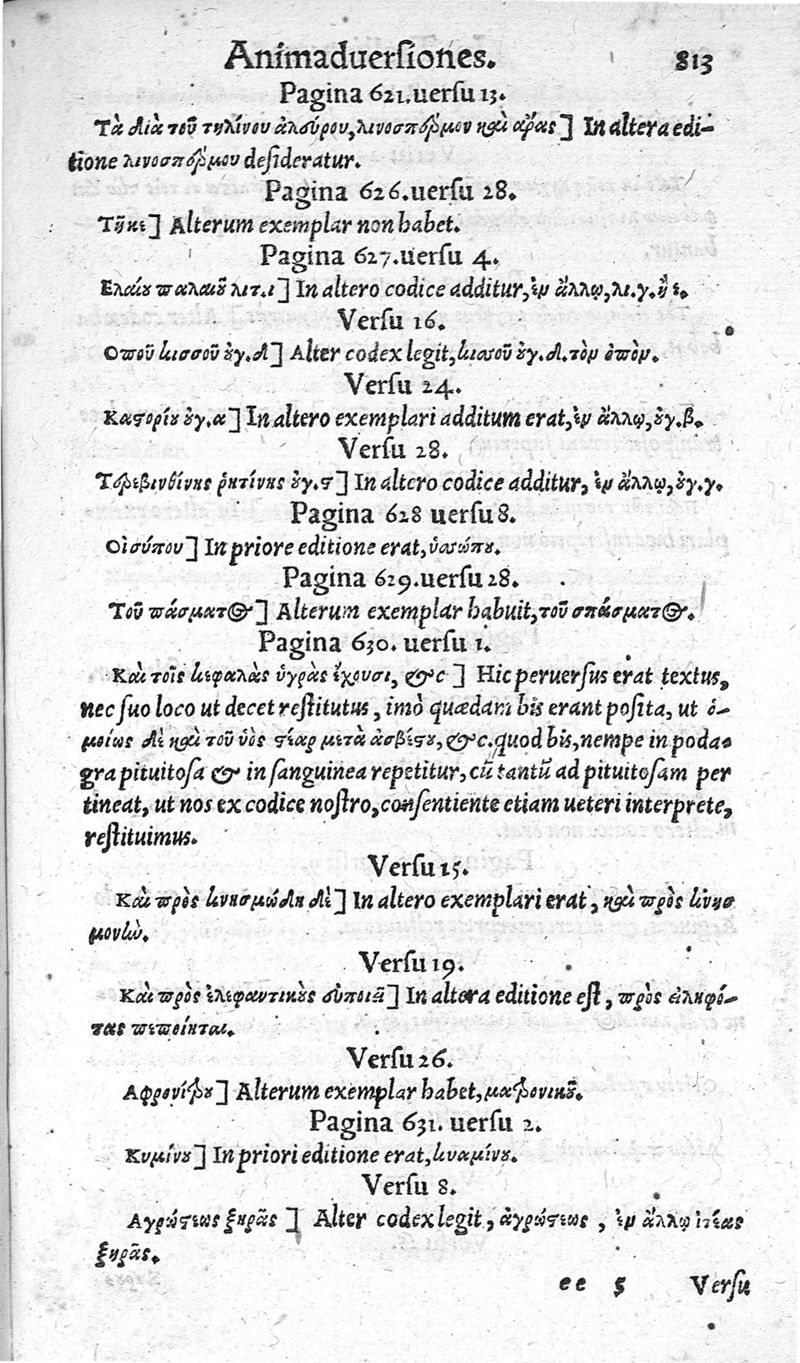 Animaduersiones. 813
Pagina 621. uersu 13.
Τὰ διὰ τοῦ τηλίνου ἀλεύρου, λινοσπέρμου καὶ] In altera edi-
tione λινοσπέρμου desideratur.
Pagina 626. uersu 28.
Alterum exemplar non habet.
Pagina 627. uersu 4.
Ελαίου παλαιοῦ λιτ. ι] In altero codice additur, ἐν ἄλλῳ, λι. γ.
Versu 16.
Οποῦ κισσοῦ ουγ. δ] Alter codex legit, κισσοῦ ουγ. δ. τὸν ὀπὸν.
Versu 24.
Καστορίου ουγ. α] In altero exemplari additum erat, ἐν ἄλλῳ, ουγ. β.
Versu 28.
Τερεβινθίνης ῥητίνης ουγ. ϛ] In altero codice additur, ἐν ἄλλῳ, ουγ. γ.
Pagina 628 uersu 8.
Οἰσύπου] In priore editione erat, ὑσώπου.
Pagina 629. uersu 28.
Τοῦ πάσματος] Alterum exemplar habuit, τοῦ σπάσματος.
Pagina 630. uersu 1.
Καὶ τοῖς κεφαλὰς ὑγρὰς ἔχουσι, &c ] Hic peruersus erat textus,
nec suo loco ut decet restitutus, imò quædam bis erant posita, ut ὁ-
μοίως δὲ καὶ τοῦ ὑὸς στέαρ μετὰ ἀσβέστου, &c. quod bis, nempe in poda-
gra pituitosa & in sanguinea repetitur, cũ tantũ ad pituitosam per
tineat, ut nos ex codice nostro, consentiente etiam ueteri interprete,
restituimus.
Versu 15.
Καὶ πρὸς κνησμώδη δὲ] In altero exemplari erat, καὶ πρὸς κνησ
μονὼ.
Versu 19.
Και πρὸς ἐλεφαντικοὺς εὐποιεῖ] In altera editione est, πρὸς
πεποίηται.
Versu 26.
Αφρονίτρου] Alterum exemplar habet,
Pagina 631. uersu 2.
Κυμίνου] In priori editione erat, κιναμίνου.
Versu 8.
Αγρώστεως ξηρᾶς ] Alter codex legit, ἀγρώστεως, ἐν ἄλλῳ ἰτέας
ξηρᾶς.
ee 5 Versu